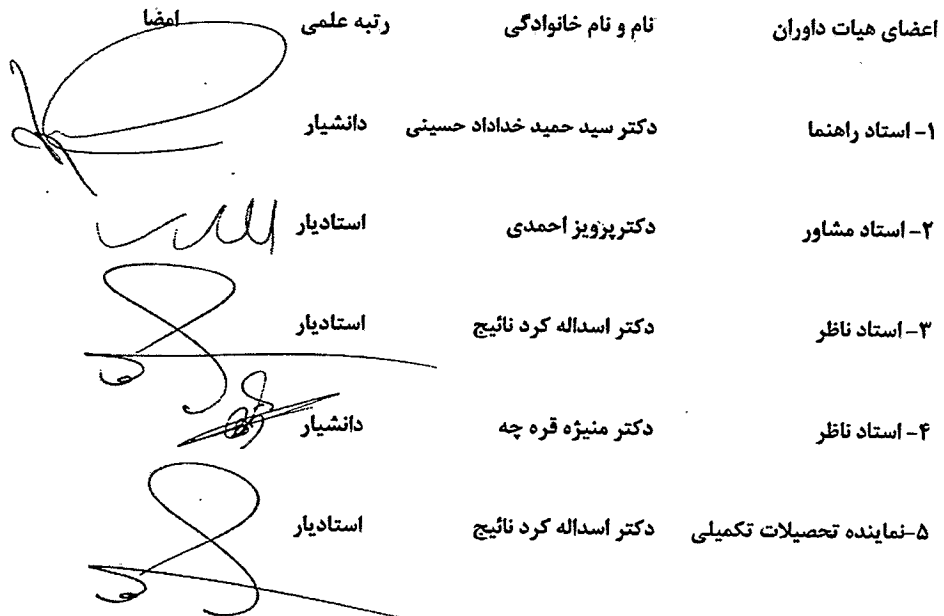 اعضای هیات داوران نام و نام خانوادگی رتبه علمی امضا
۱- استاد راهنما دکتر سید حمید خداداد حسینی دانشیار
۲- استاد مشاور دکتر پرویز احمدی استادیار
۳- استاد ناظر دکتر اسداله کرد نائیج استادیار
۴- استاد ناظر دکتر منیژه قره چه دانشیار
۵-نماینده تحصیلات تکمیلی دکتر اسداله کرد نائیج استادیار